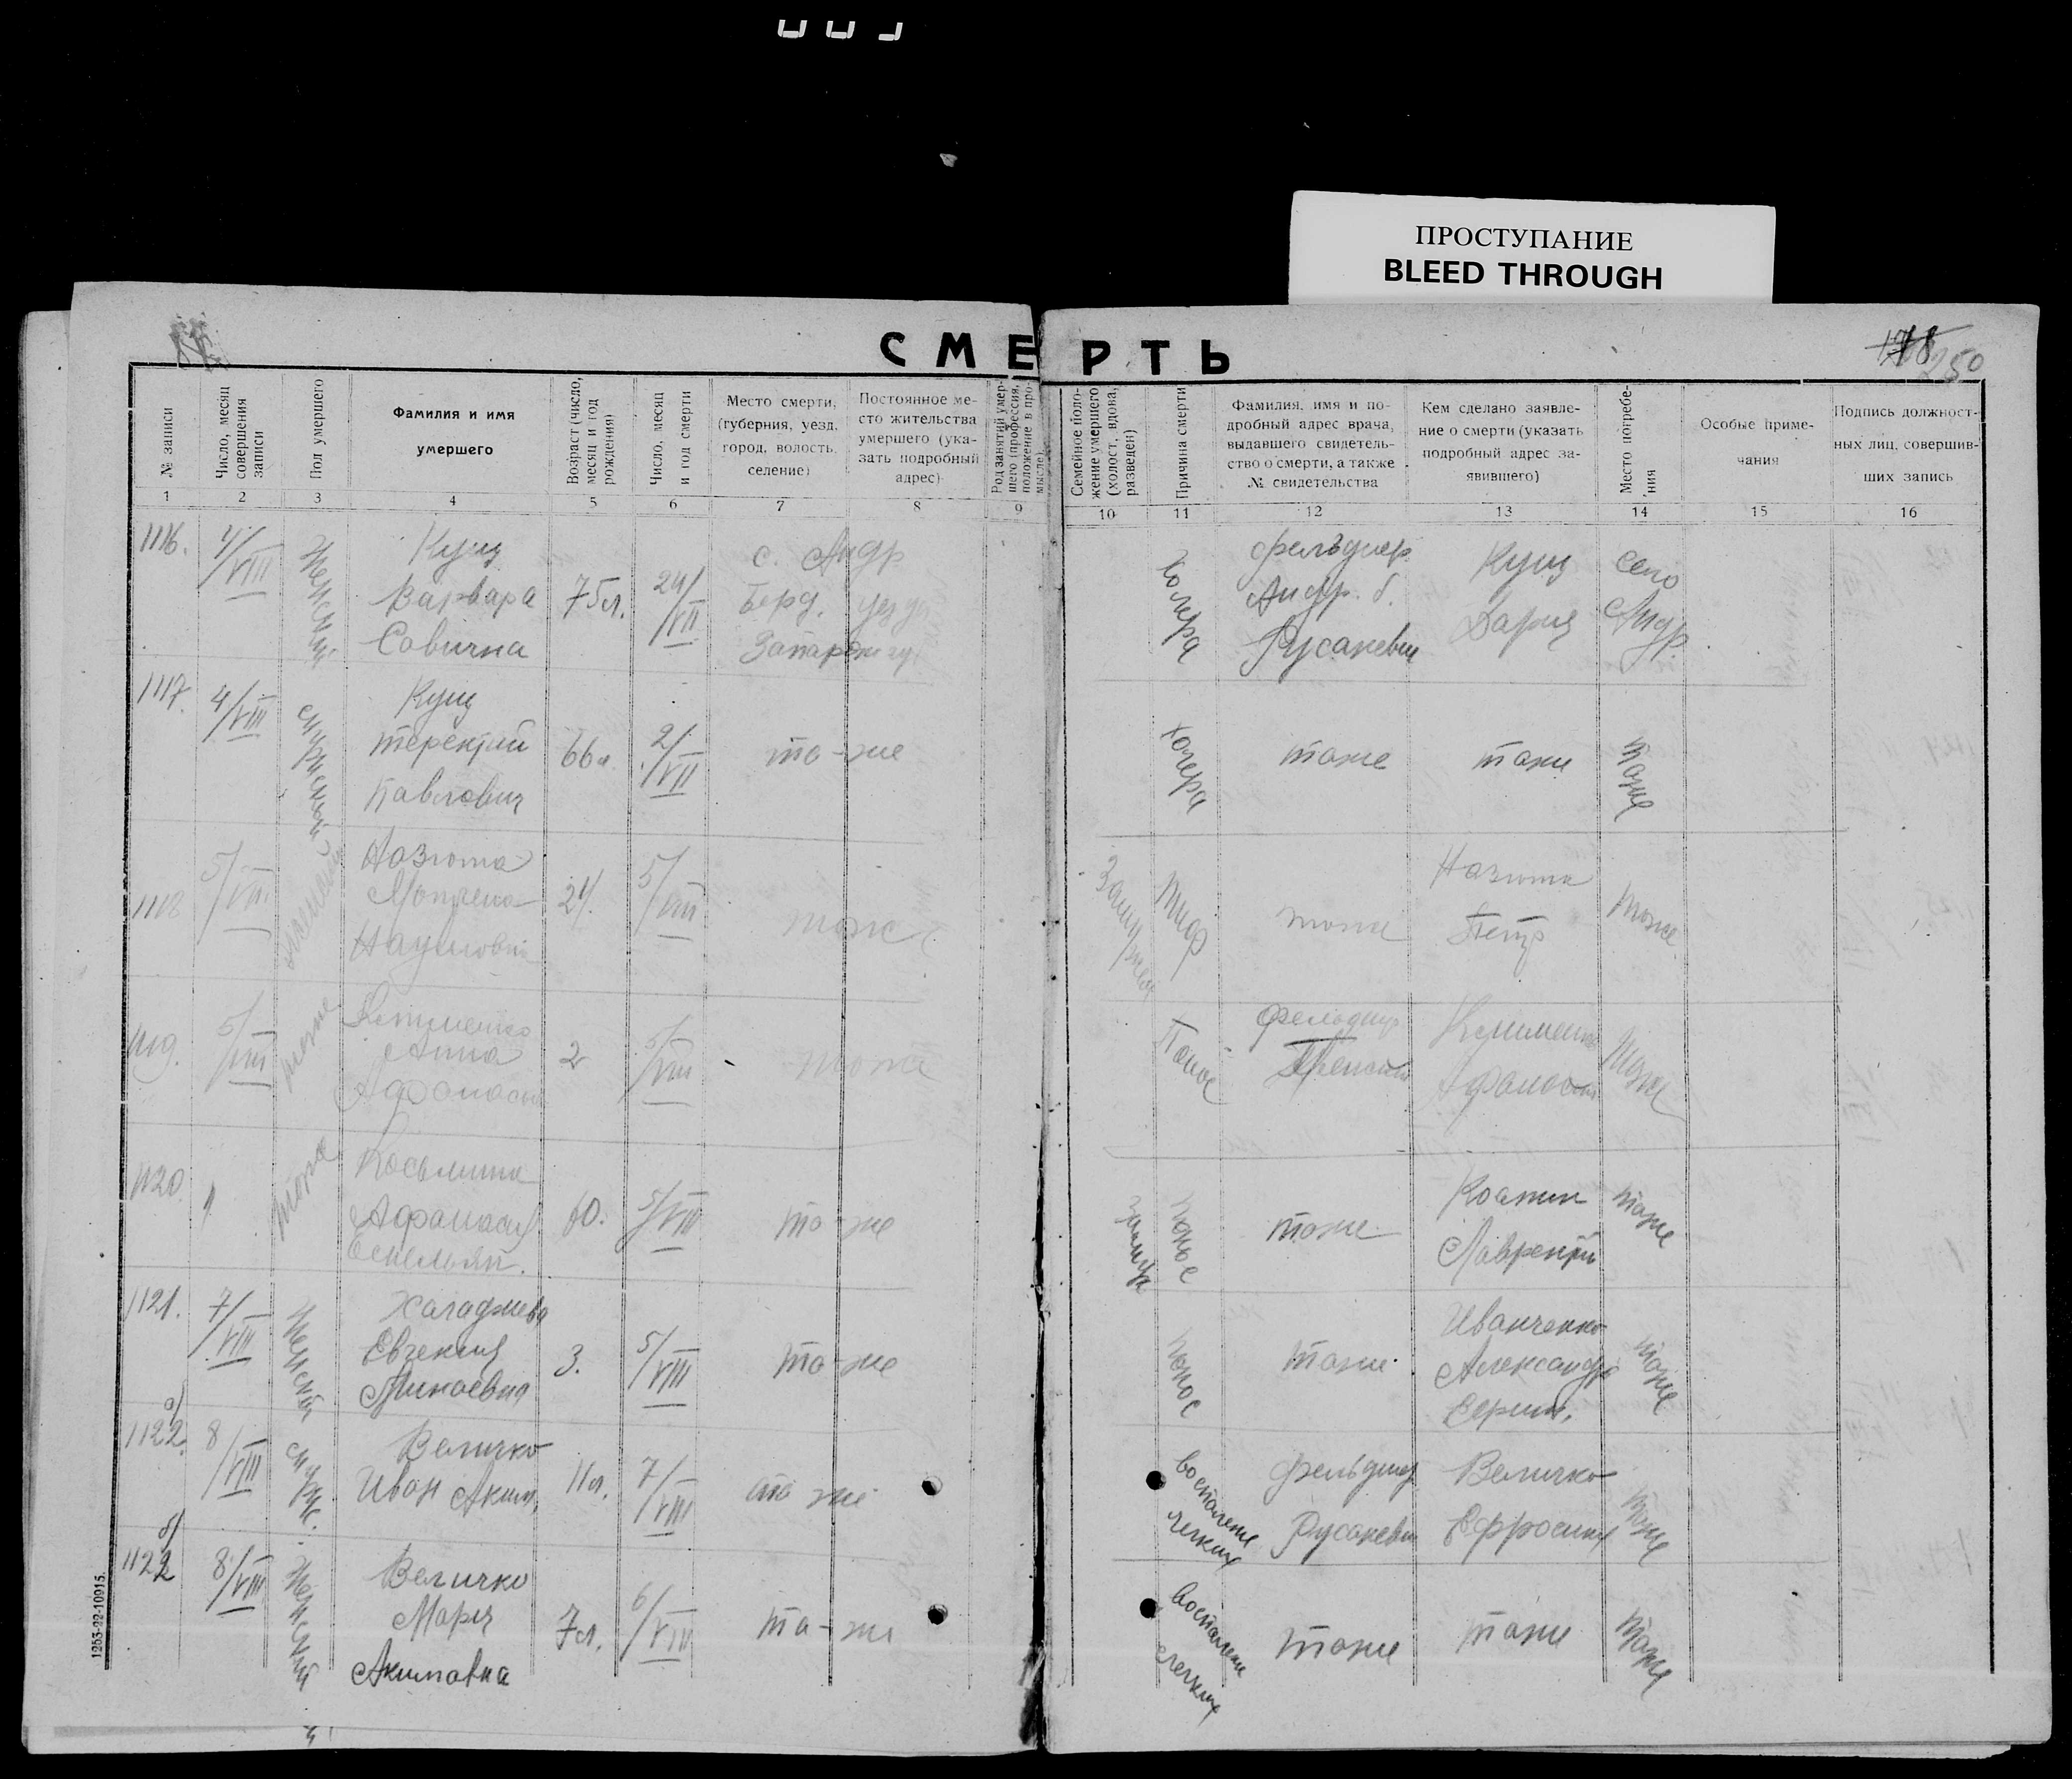 ПРОСТУПАНИЕ
BLEED THROUGH
СМЕРТЬ
250
№ записи
Число, месяц совершения записи
Пол умершего
Фамилия и имя
умершего
Возраст (число, месяц и год рождения)
Число, месяц и год смерти
Место смерти, (губерния, уезд, город, волость, селение)
Постоянное место жительства умершего (указать подробный адрес)
Род занятий умершего (профессия, положение в промысле)
Семейное положение умершего (холост, вдова, разведен)
Причина смерти
Фамилия, имя и подробный адрес врача, выдавшего свидетельство о смерти, а также № свидетельства
Кем сделано заявление о смерти (указать подробный адрес заявившего)
Место погребения
Особые примечания
Подпись должностных лиц, совершивших запись
1 2 3 4 5 6 7 8 9 10 11 12 13 14 15 16
1116. 4/VIII Женский
Кущ
Варвара
Савична
75 л. 24/VII
с. Андр
Берд. уезда
холера
Андр. б.
Русакевич
Кущ
Дария
село
Андр.
1117. 4/VIII мужской
Кущ
Павлович
66 л. 2/VII то-же
холера
тоже тоже тоже
1118 5/VIII
Назюта
Наумовна
24. 5/VIII тоже
Замужем
Тиф
тоже
Назюта
Петр
тоже
1119. 5/VIII тоже
Анна
2 5/VIII тоже
Понос
тоже
1120. тоже
60. 5/VIII то-же
понос
тоже
Лаврентий
тоже
1121. 7/VIII Женский
Халаджиева
Евгения
3. 5/VIII то-же
понос
тоже
Иванченко
Александр
тоже
а)
1122. 8/VIII мужс.
Величко
Иван Аким.
11 л. 7/VIII то же
воспаление
легких
Русакевич
Величко
Ефросиния
тоже
б)
1122 8/VIII Женский
Величко
Мария
Акимовна
7 л. 6/VIII то-же
воспаление
легких
тоже тоже тоже
1253-22-10915.